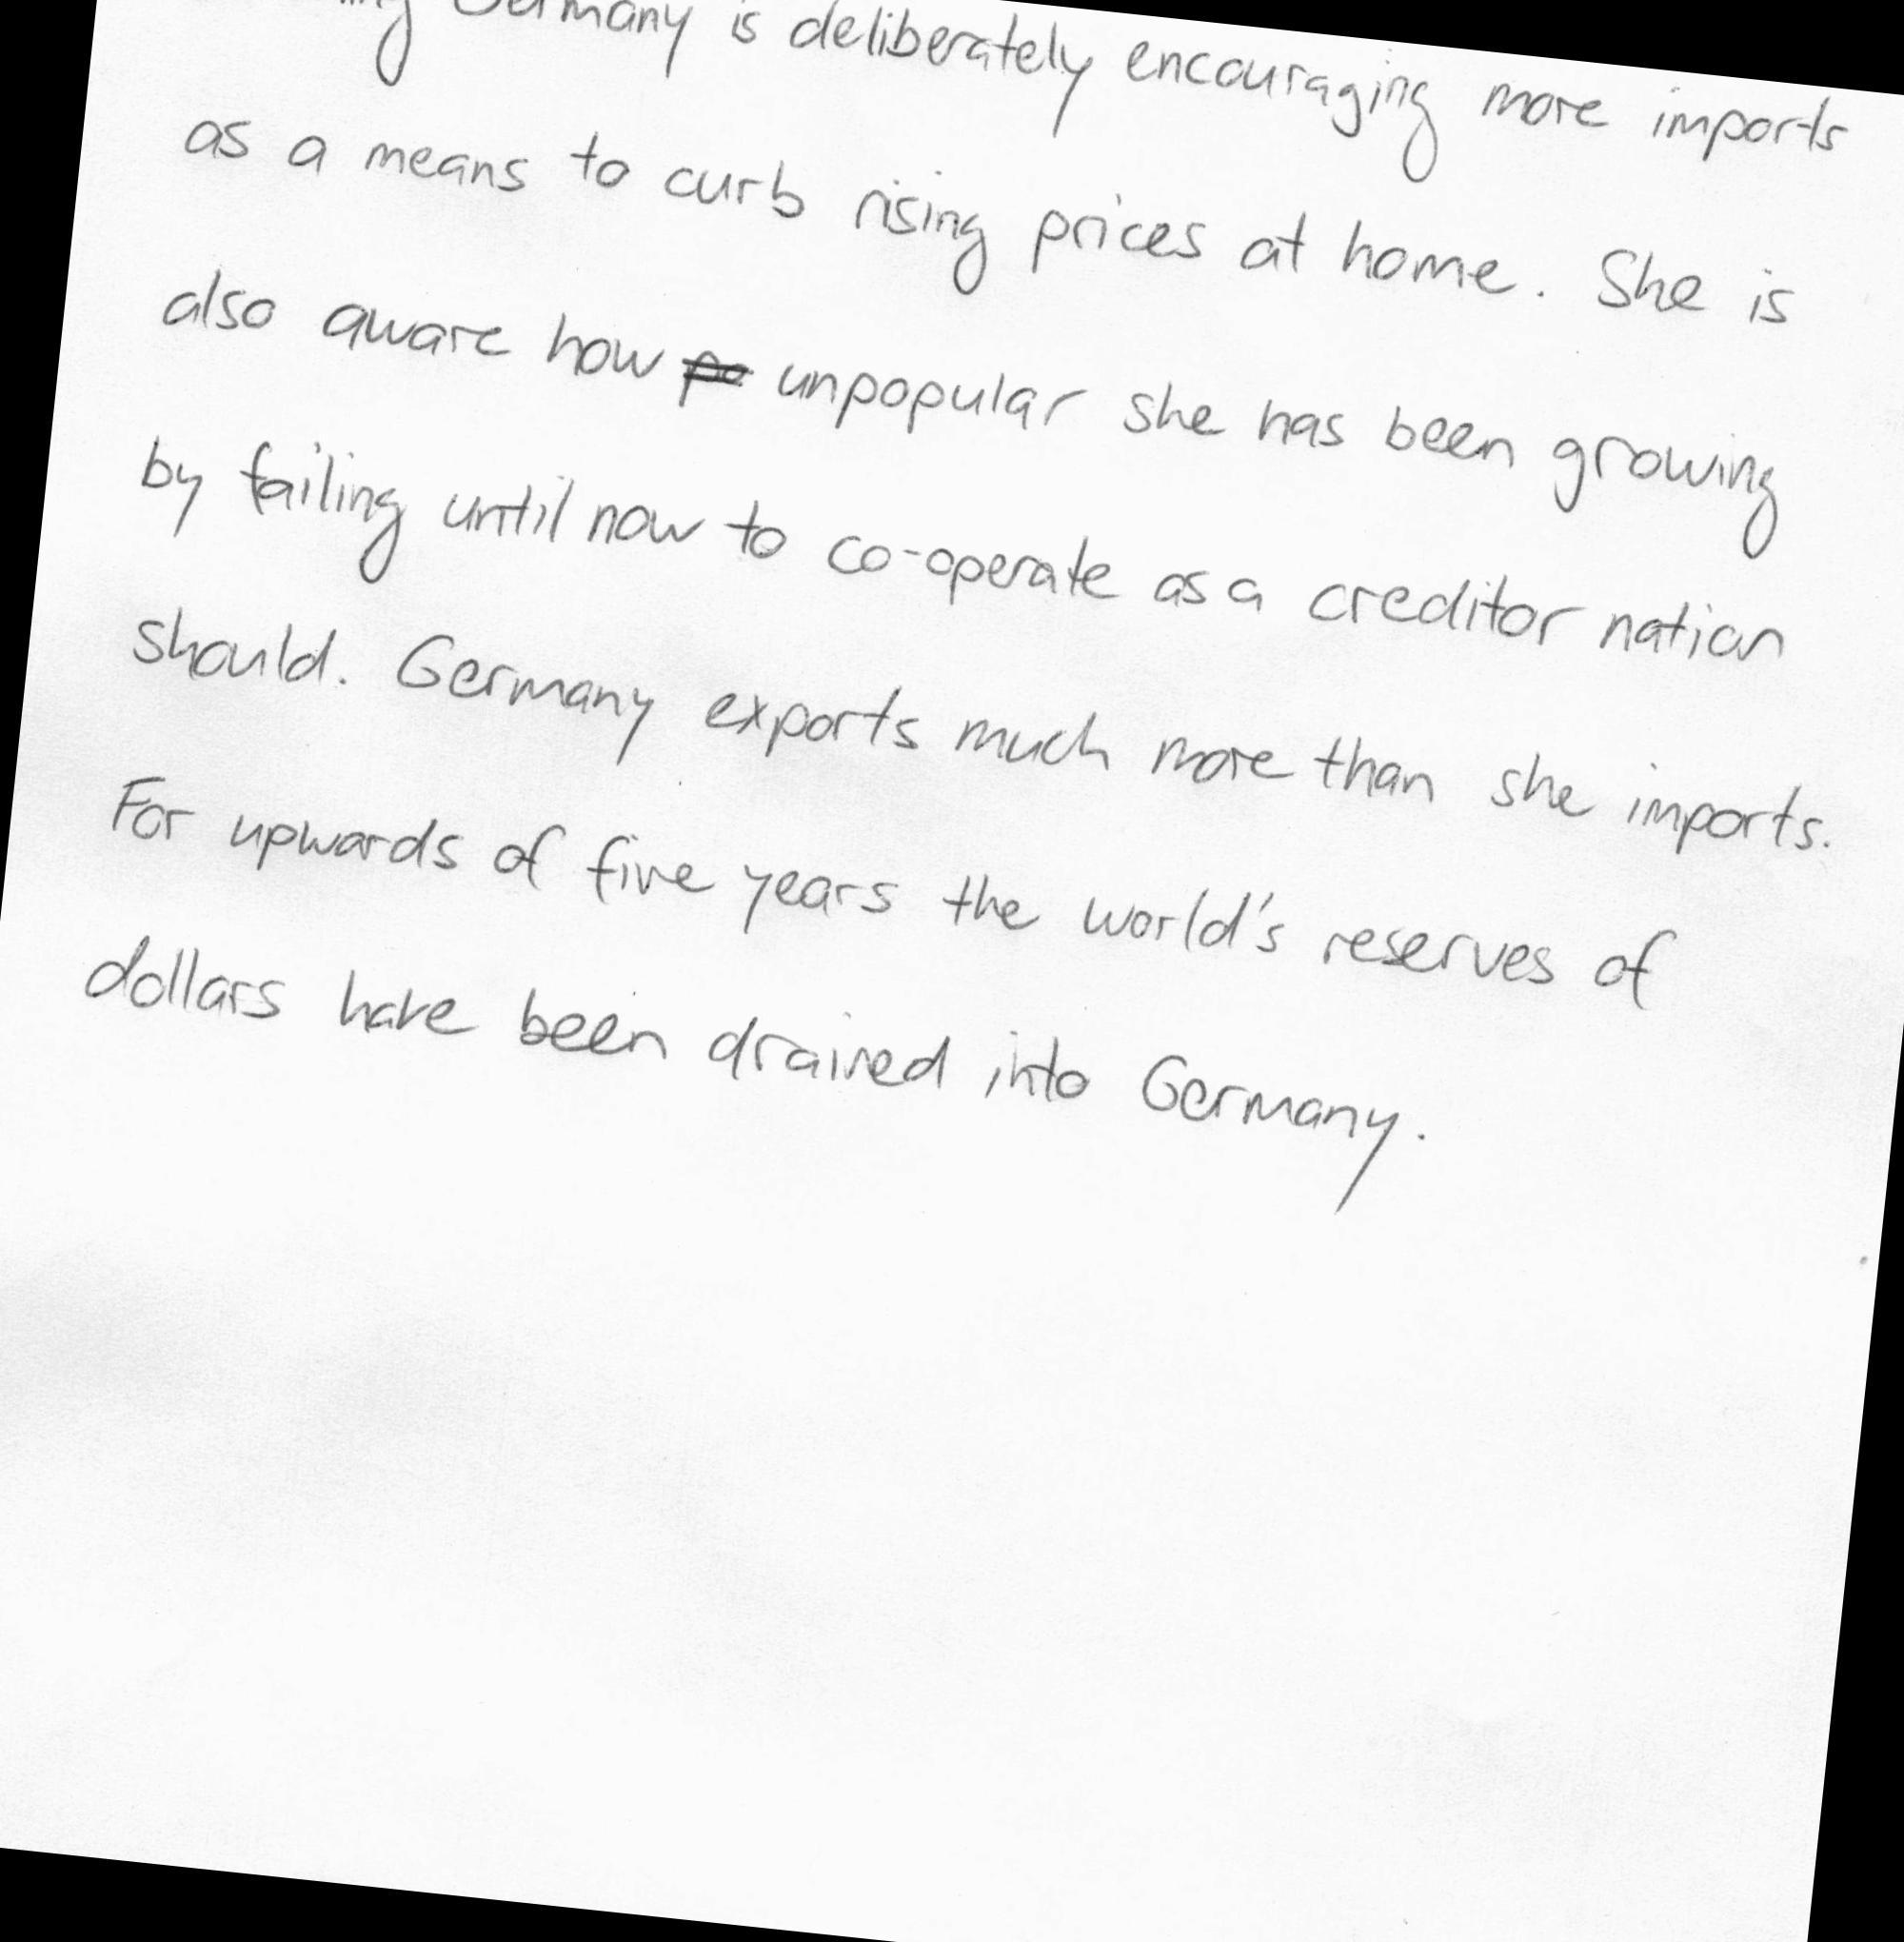 Germany is deliberately encouraging more imports
as a means to curb rising prices at home. She is
also aware how unpopular she has been growing
by failing until now to co-operate as a creditor nation
should. Germany exports much more than she imports.
For upwards of five years the world's reserves of
dollars have been drained into Germany.